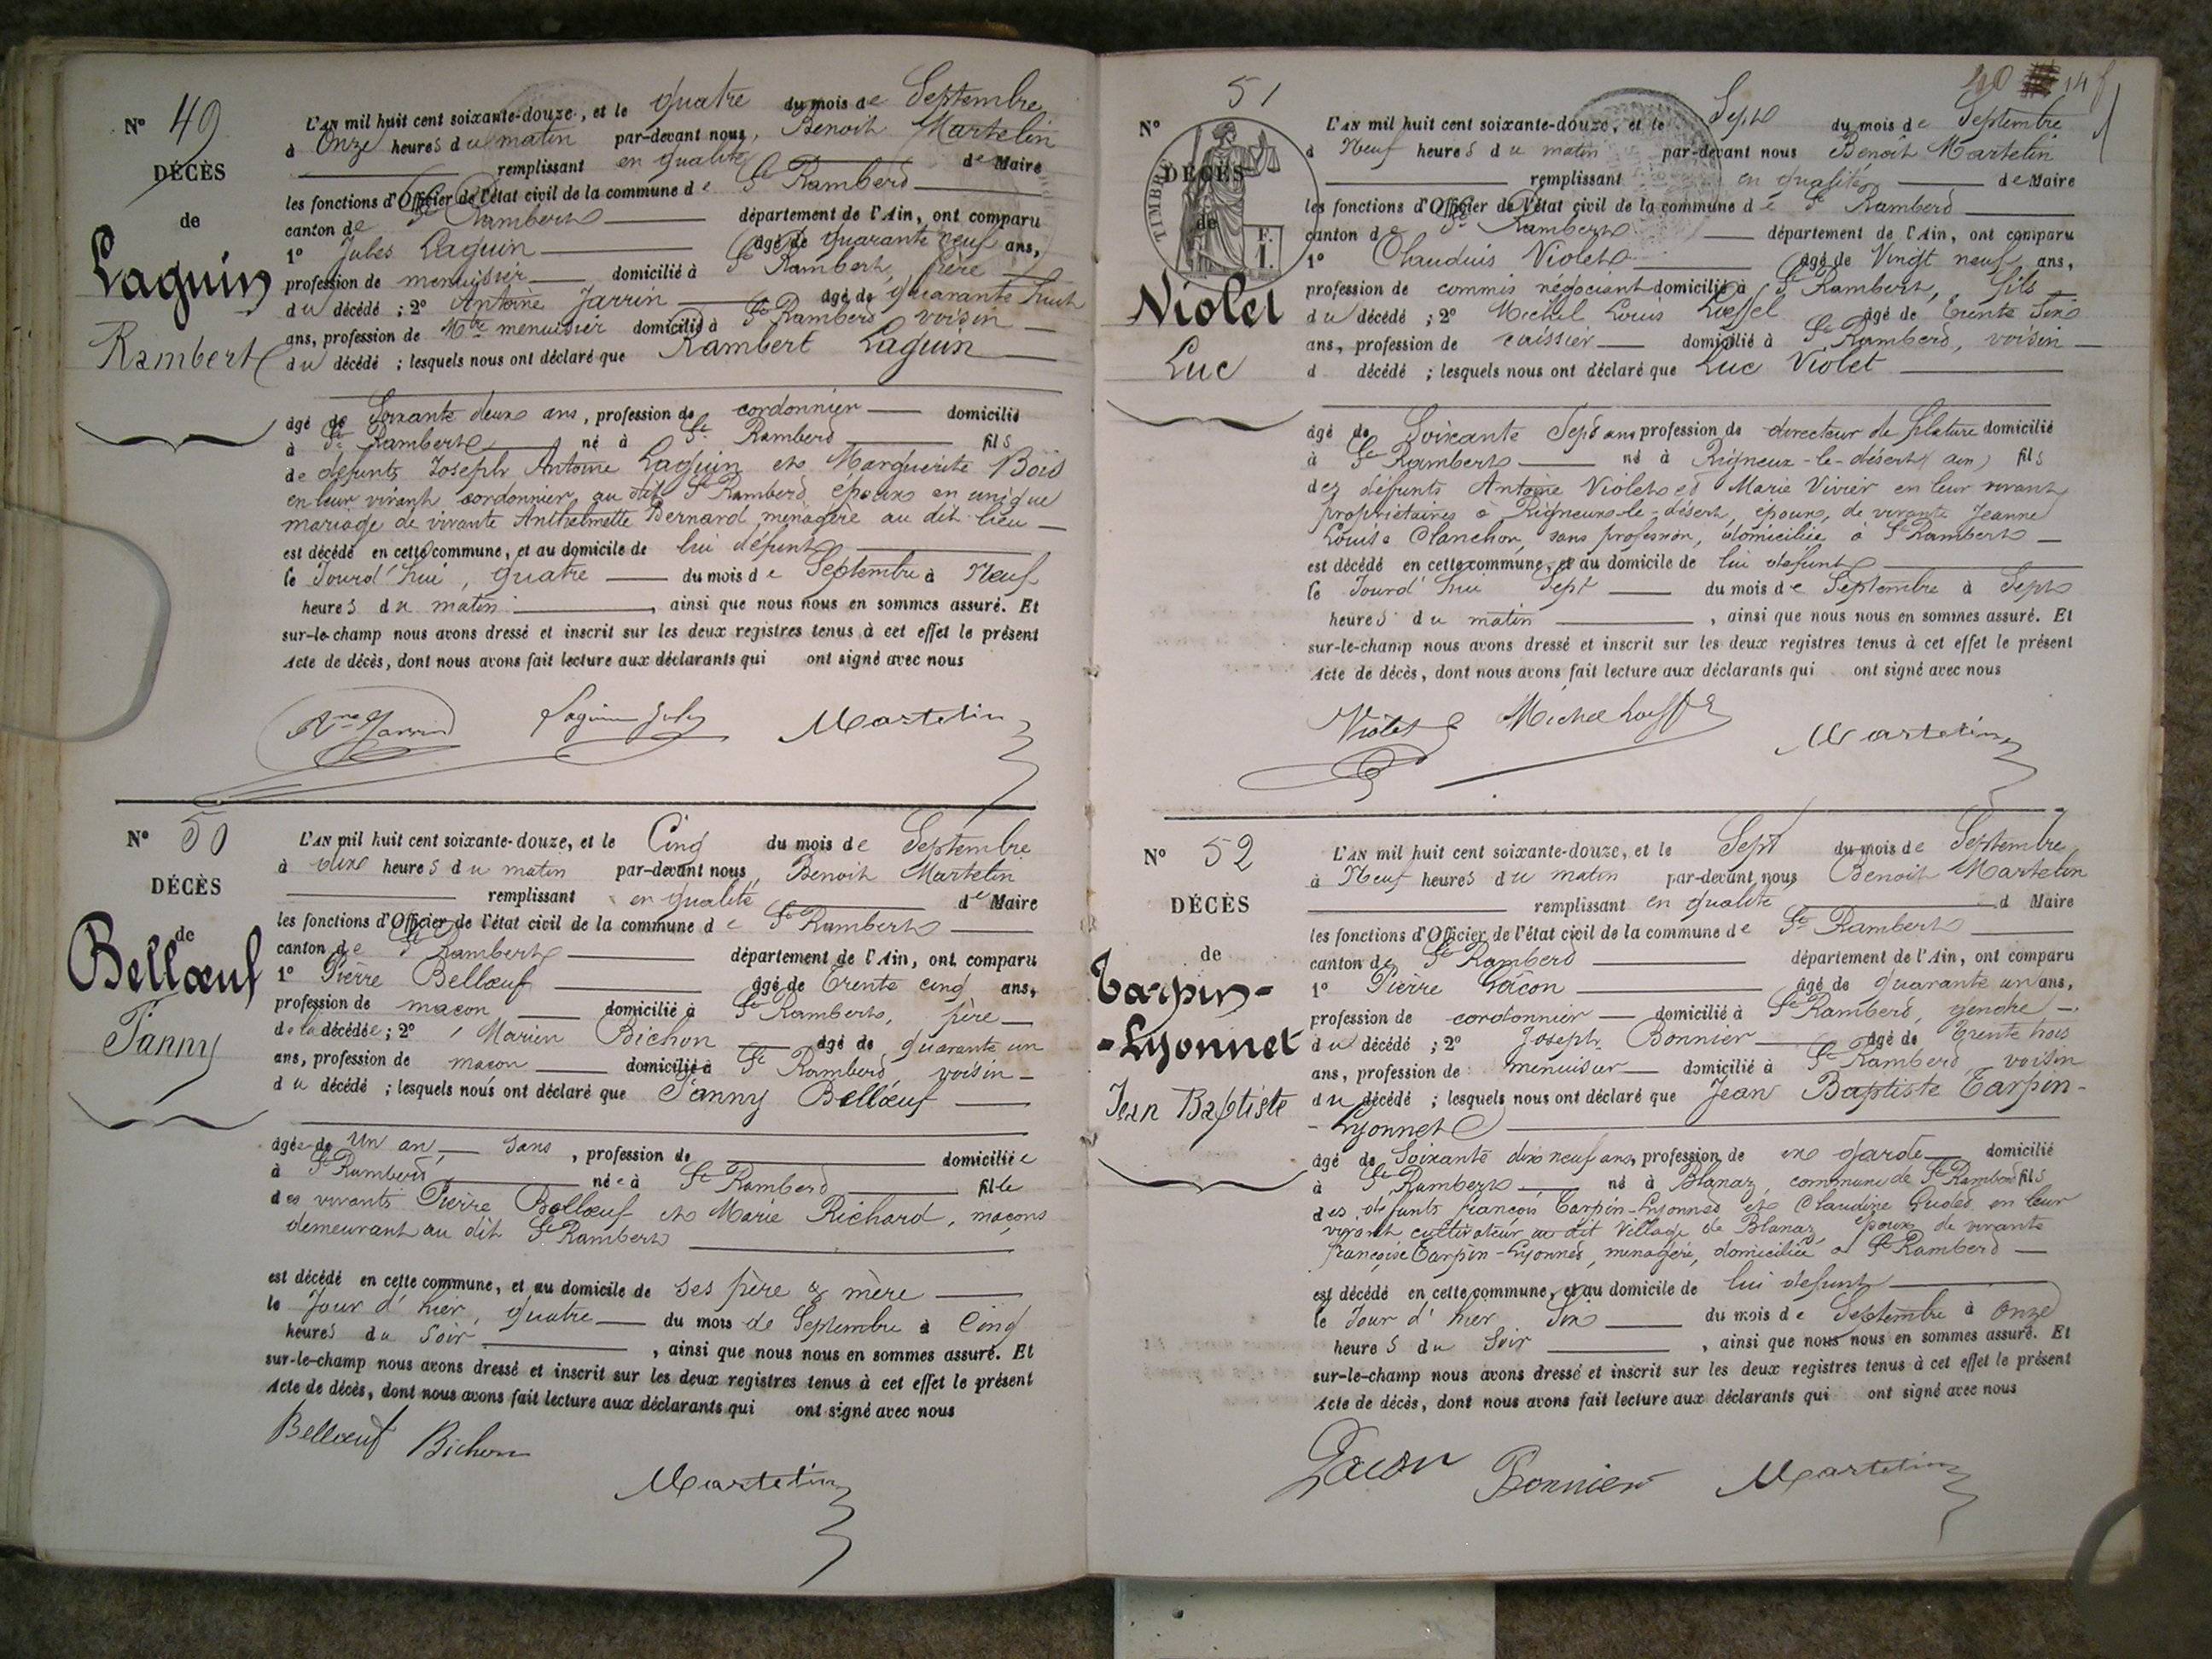 N° 49
DÉCÈS
de
Laguin
Rambert
L'AN mil huit cent soixante-douze, et le quatre du mois de Septembre
à Onze heures du matin par-devant nous, Benoit Martelin
remplissant en qualité de Maire
les fonctions d'Officier de l'état civil de la commune de St Rambert
canton de St Rambert département de l'Ain, ont comparu
1° Jules Laguin âgé de quarante neuf ans,
profession de menuisier domicilié à St Rambert, frère
du décédé ; 2° Antoine Jarrin âgé de quarante huit
ans, profession de Mtre menuisier domicilié à St Rambert voisin
du décédé ; lesquels nous ont déclaré que Rambert Laguin
âgé de Soixante deux ans, profession de cordonnier domicilié
à St Rambert né à St Rambert fils
de défunts Joseph Antoine Laguin et Marguerite Bois
en leur vivant cordonnier au dit St Rambert, époux en unique
mariage de vivante Anthelmette Bernard, ménagère au dit lieu
est décédé en cette commune, et au domicile de lui défunt
le Jourd'hui, quatre du mois de Septembre à Neuf
heures du matin, ainsi que nous nous en sommes assuré. Et
sur-le-champ nous avons dressé et inscrit sur les deux registres tenus à cet effet le présent
Acte de décès, dont nous avons fait lecture aux déclarants qui ont signé avec nous
Ane Jarrin Laguin Jules Martelin
N° 50
DÉCÈS
de
Bellœuf
Fanny
L'AN mil huit cent soixante-douze, et le Cinq du mois de Septembre
à dix heures du matin par-devant nous, Benoit Martelin
remplissant en qualité de Maire
les fonctions d'Officier de l'état civil de la commune de St Rambert
canton de St Rambert département de l'Ain, ont comparu
1° Pierre Bellœuf âgé de Trente cinq ans,
profession de maçon domicilié à St Rambert, père
de la décédée ; 2° Marien Bichon âgé de quarante un
ans, profession de maçon domicilié à St Rambert voisin
du décédé ; lesquels nous ont déclaré que Fanny Bellœuf
âgée de Un an, sans, profession de domiciliée
à St Rambert née à St Rambert fille
des vivants Pierre Bellœuf et Marie Richard, maçons
demeurant au dit St Rambert
est décédé en cette commune, et au domicile de ses père & mère
le Jour d'hier, quatre du mois de Septembre à Cinq
heures du Soir, ainsi que nous nous en sommes assuré. Et
sur-le-champ nous avons dressé et inscrit sur les deux registres tenus à cet effet le présent
Acte de décès, dont nous avons fait lecture aux déclarants qui ont signé avec nous
Bellœuf Bichon
Martelin
N° 51
TIMBRE
F.
1.
DÉCÈS
de
Violet
Luc
L'AN mil huit cent soixante-douze, et le Sept du mois de Septembre
à Neuf heures du matin par-devant nous Benoit Martelin
remplissant en qualité de Maire
les fonctions d'Officier de l'état civil de la commune de St Rambert
canton de St Rambert département de l'Ain, ont comparu
1° Claudius Violet âgé de Vingt neuf ans,
profession de commis négociant domicilié à St Rambert, fils
du décédé ; 2° Michel Louis Lœffel âgé de Trente Six
ans, profession de caissier domicilié à St Rambert, voisin
d décédé ; lesquels nous ont déclaré que Luc Violet
âgé de Soixante Sept ans profession de directeur de filature domicilié
à St Rambert né à Rigneux-le-désert (ain) fils
des défunts Antoine Violet et Marie Vivier en leur vivant
propriétaires à Rigneux-le-désert, époux, de vivante Jeanne
Louise Clanchon, sans profession, domiciliée à St Rambert
est décédé en cette commune, et au domicile de lui défunt
le Jourd'hui Sept du mois de Septembre à Sept
heures du matin, ainsi que nous nous en sommes assuré. Et
sur-le-champ nous avons dressé et inscrit sur les deux registres tenus à cet effet le présent
Acte de décès, dont nous avons fait lecture aux déclarants qui ont signé avec nous
Violet Michel Martelin
N° 52
DÉCÈS
de
Tarpin-
-Lyonnet
Jean Baptiste
L'AN mil huit cent soixante-douze, et le Sept du mois de Septembre
à Neuf heures du matin par-devant nous Benoit Martelin
remplissant en qualité d Maire
les fonctions d'Officier de l'état civil de la commune de St Rambert
canton de St Rambert département de l'Ain, ont comparu
1° Pierre Gâcon âgé de quarante un ans,
profession de cordonnier domicilié à St Rambert, gendre
du décédé ; 2° Joseph Bonnier âgé de Trente trois
ans, profession de menuisier domicilié à St Rambert voisin
du décédé ; lesquels nous ont déclaré que Jean Baptiste Tarpin-
-Lyonnet
âgé de Soixante dix neuf ans, profession de ex garde domicilié
à St Rambert né à Blanaz, commune de St Rambert fils
des défunts françois Tarpin-Lyonnet et Claudine en leur
vivant cultivateur au dit Village de Blanaz, époux de vivante
françoise Tarpin-Lyonnet, ménagère, domiciliée à St Rambert
est décédé en cette commune, et au domicile de lui défunt
le Jour d'hier Six du mois de Septembre à Onze
heures du Soir, ainsi que nous nous en sommes assuré. Et
sur-le-champ nous avons dressé et inscrit sur les deux registres tenus à cet effet le présent
Acte de décès, dont nous avons fait lecture aux déclarants qui ont signé avec nous
Gâcon Bonnier Martelin